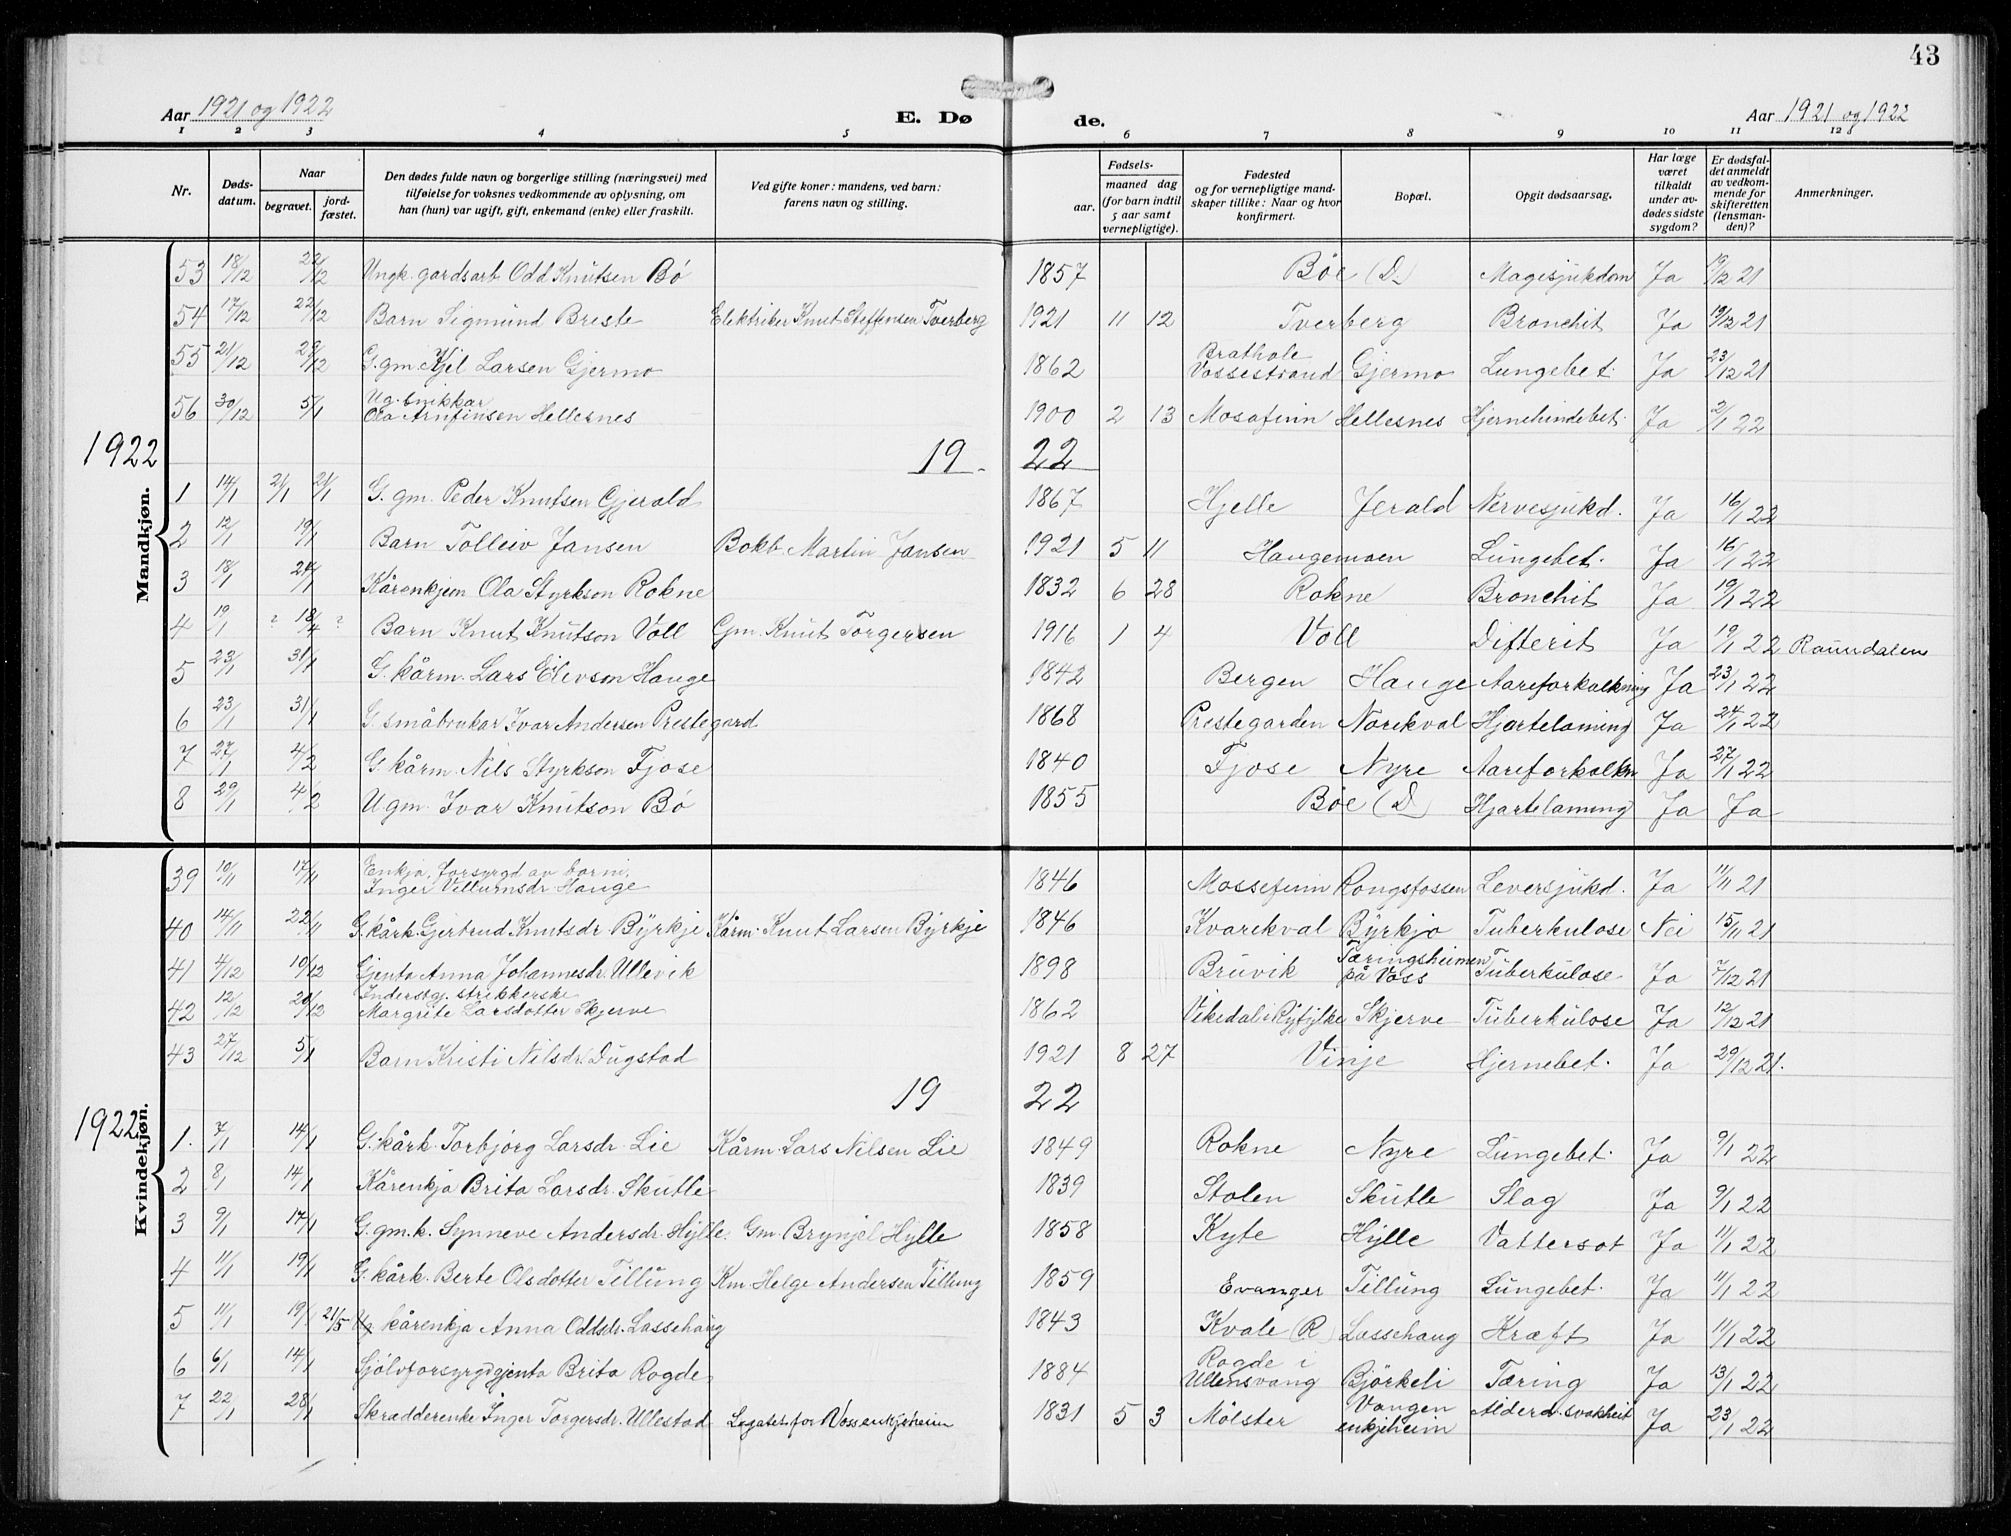 43
Aar 1921 og 1922 E. Dø de. Aar 1921 og 1922
1 2 3 4 5 6 7 8 9 10 11 12
Nr. Døds-datum. Naar begravet. jord-fæstet. Den dødes fulde navn og borgerlige stilling (næringsvei) med tilføielse for voksnes vedkommende av oplysning, om han (hun) var ugift, gift, enkemand (enke) eller fraskilt. Ved gifte koner: mandens, ved barn: farens navn og stilling. Fødsels- aar. maaned dag (for barn indtil 5 aar samt vernepligtige). Fødested og for vernepligtige mand-skaper tillike: Naar og hvor konfirmert. Bopæl. Opgit dødsaarsag. Har læge været tilkaldt under av-dødes sidste sygdom? Er dødsfal-det anmeldt av vedkom-mende for skifteretten (lensman-den)? Anmerkninger.
Mandkjøn.
53 18/12 22/12 Ungk. gardsarb. Odd Knutsen Bö 1857 Böe (D.) Magesjukdom Ja 19/12 21
54 17/12 22/12 Barn Sigmund Breste Elektriker Knut Steffensen Tverberg 1921 11 12 Tverberg Bronchit Ja 19/12 21
55 21/12 29/12 G. gm. Kjel Larsen Gjermo 1862 Brathole Vossestrand Gjermo Lungebet. Ja 23/12 21
56 30/12 5/1 Ug. snikkar Ola Arnfinsen Hellesnes 1900 2 13 Mosafinn Hellesnes Hjernehindebet. Ja 2/1 22
1922 19 22
1 14/1 21/1 21/1 G. gm. Peder Knutsen Gjerald 1867 Hjelle Jerald Nervesjukd. Ja 16/1 22
2 12/1 19/1 Barn Tolleiv Jansen Bokb. Martin Jansen 1921 5 11 Haugamoen Lungebet. Ja 16/1 22
3 18/1 24/1 Kårenkjem Ola Styrkson Rokne 1832 6 28 Rokne Bronchit Ja 19/1 22
4 19/1 ? 18/4 ? Barn Knut Knutson Voll Gm. Knut Torgersen 1916 1 4 Voll Difterit Ja 19/1 22 Raundalen
5 23/1 31/1 G. kårm. Lars Eilevson Hauge 1842 Bergen Hauge Aareforkalkning Ja 23/1 22
6 23/1 31/1 G. småbrukar Ivar Andersen Prestegard 1868 Prestegarden Norekval Hjartelaming Ja 24/1 22
7 27/1 4/2 G. kårm. Nils Styrkson Fjose 1840 Fjose Nyre Aareforkalkn Ja 27/1 22
8 29/1 4/2 U. gm. Ivar Knutson Bö 1855 Böe (D.) Hjartelaming Ja Ja
Kvindekjøn.
39 10/11 17/11 Enkja, forsyrgd av borni, Inger Villumsdr. Hauge 1846 Mossefinn Rongsfossen Leversjukd. Ja 11/11 21
40 14/11 22/11 G. kårk. Gjertrud Knutsdr. Byrkje Kårm. Knut Larsen Byrkje 1846 Kvarekval Byrkjo Tuberkulose Nei 15/11 21
41 4/12 10/12 Gjenta Anna Johannesdr. Ullevik 1898 Bruvik Tæringsheimen på Voss Tuberkulose Ja 7/12 21
42 12/12 20/12 Inderstgj. strikkerske Margrete Larsdotter Skjerve 1862 Vikedal i Ryfylke Skjerve Tuberkulose Ja 12/12 21
43 27/12 5/1 Barn Kristi Nilsdr. Dugstad 1921 8 27 Vinje Hjernebet. Ja 29/12 21.
1922 19 22
1. 7/1 14/1 G. kårk. Torbjörg Larsdr. Lie Kårm. Lars Nilsen Lie 1849 Rokne Nyre Lungebet. Ja 9/1 22
2 8/1 14/1 Kårenkja Brita Larsdr. Skutle 1839 Stolen Skutle Slag Ja 9/1 22
3 9/1 17/1 G. gm. k. Synneve Andersdr. Hylle. Gm. Brynjel Hylle 1858 Kyte Hylle Vattersot Ja 11/1 22
4 11/1 19/1 G. kårk. Berte Olsdotter Tillung Km. Helge Andersen Tillung 1859 Evanger Tillung Lungebet. Ja 11/1 22
5 11/1 19/1 21/5 kårenkja Anna Oddsdr. Lassehaug 1843 Kvale (R) Lassehaug Kræft Ja 11/1 22
6 6/1 14/1 Sjölvforsyrgd gjenta Brita Rogde 1884 Rogde i Ullensvang Björkeli Tæring Ja 13/1 22
7 22/1 28/1 Skrædderenke Inger Torgersdr. Ullestad Legatet for Voss enkjeheim 1831 5 3 Mölster Vangen enkjeheim Alderd. svakheit Ja 23/1 22